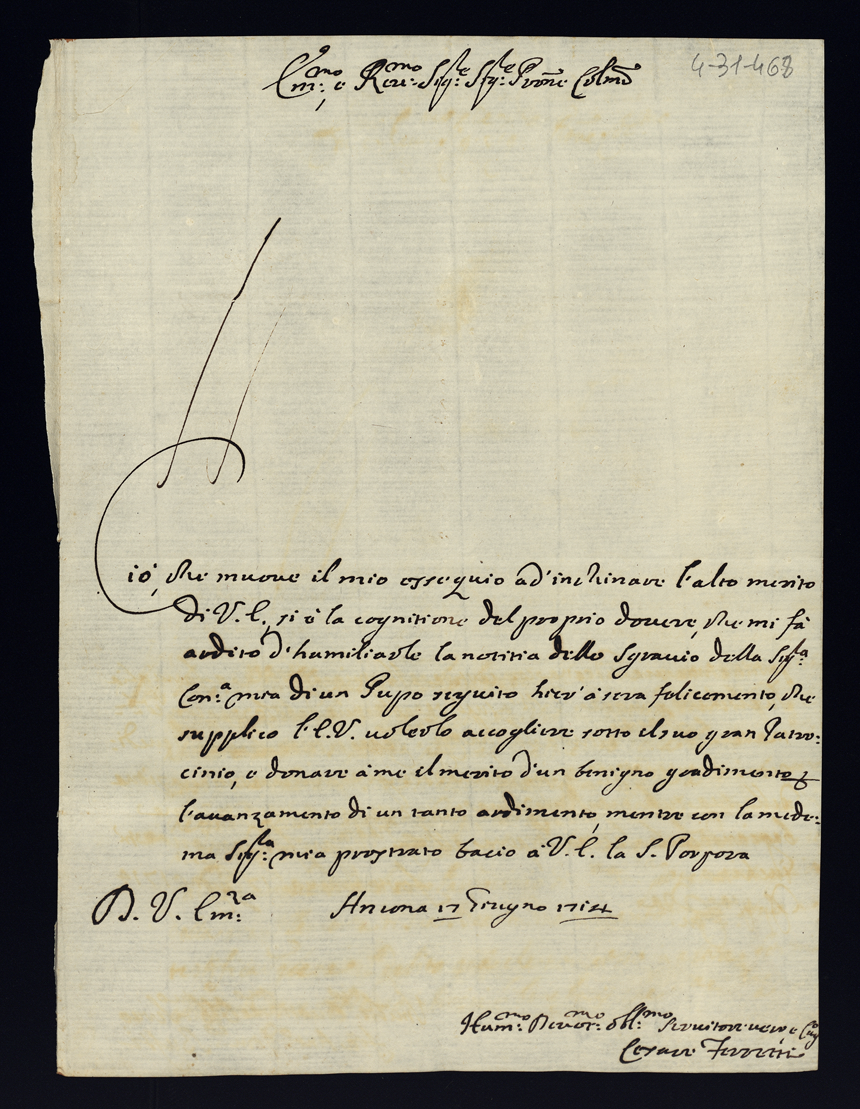 Em:mo, e Rev:mo Sig:re Sig:re Prōne Colmō
4-31-468
Ciò, che muove il mio essequio ad'inchinare l'alto merito
di V. E., si è la cognitione del proprio dovere, che mi fà
ardito d'humiliarle la notitia dello sgravio della Sig:ra
Con:a mia di un Pupo seguito hier' à sera felicemente, che
supplico l'E. V. volerlo accogliere sotto il suo gran Patro:
cinio, e donare à me il merito d'un benigno gradimento
l'avanzamento di un tanto ardimento, mentre con la mede:
ma Sig:ra mia prostrato bacio à V. E. la S. Porpora
D. V. Em:za Ancona 17 Giugno 1714
Hum:mo Devot:mo Obl:mo Servitore vero, e
Cesare Ferretti